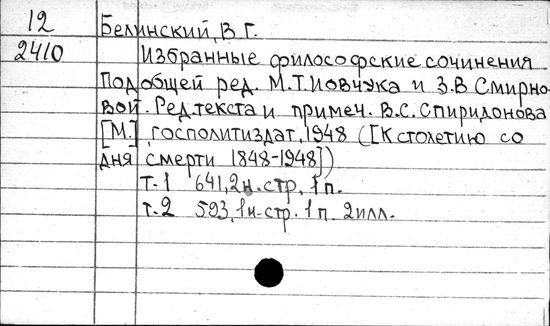 12 Белинский, В Г.
2410 Избранные философские сочинения
Под общей ред. М.Т.Иовчука и З.В Смирно-
вой. Ред.текста и примеч. В.С.Спиридонова
[М.], госполитиздат, 1948 ([К столетию со
дня смерти 1848-1948])
т.1 641, 2н.стр. 1 п.
т.2 593, 1н.стр. 1 п. 2илл.